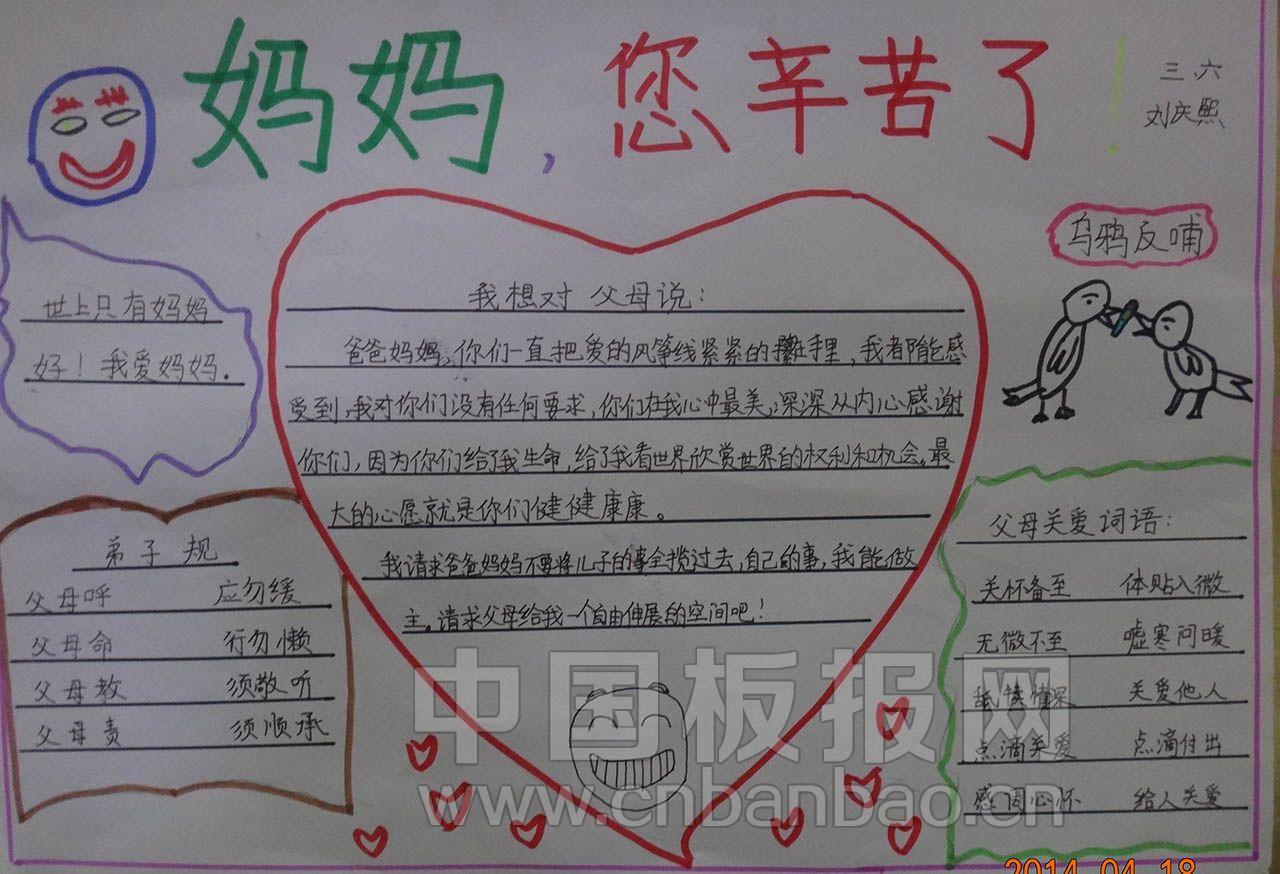 妈妈，您辛苦了
三.六
刘庆熙
世上只有妈妈
好！我爱妈妈.
我想对父母说：
爸爸妈妈，你们一直把爱的风筝线紧紧的攥在手里，我都能感
受到，我对你们没有任何要求，你们在我心中最美，深深从内心感谢
你们，因为你们给了我生命，给了我看世界欣赏世界的权利和机会。最
大的心愿就是你们健健康康。
我请求爸爸妈妈不要将儿子的事全揽过去，自己的事，我能做
主。请求父母给我一个自由伸展的空间吧！
乌鸦反哺
弟子规
父母呼 应勿缓
父母命 行勿懒
父母教 须敬听
父母责 须顺承
父母关爱词语：
关怀备至 体贴入微
无微不至 嘘寒问暖
舐犊情深 关爱他人
点滴关爱 点滴付出
感因心怀 给人关爱
中国板报网
www.cnbanbao.cn
2014.04.18